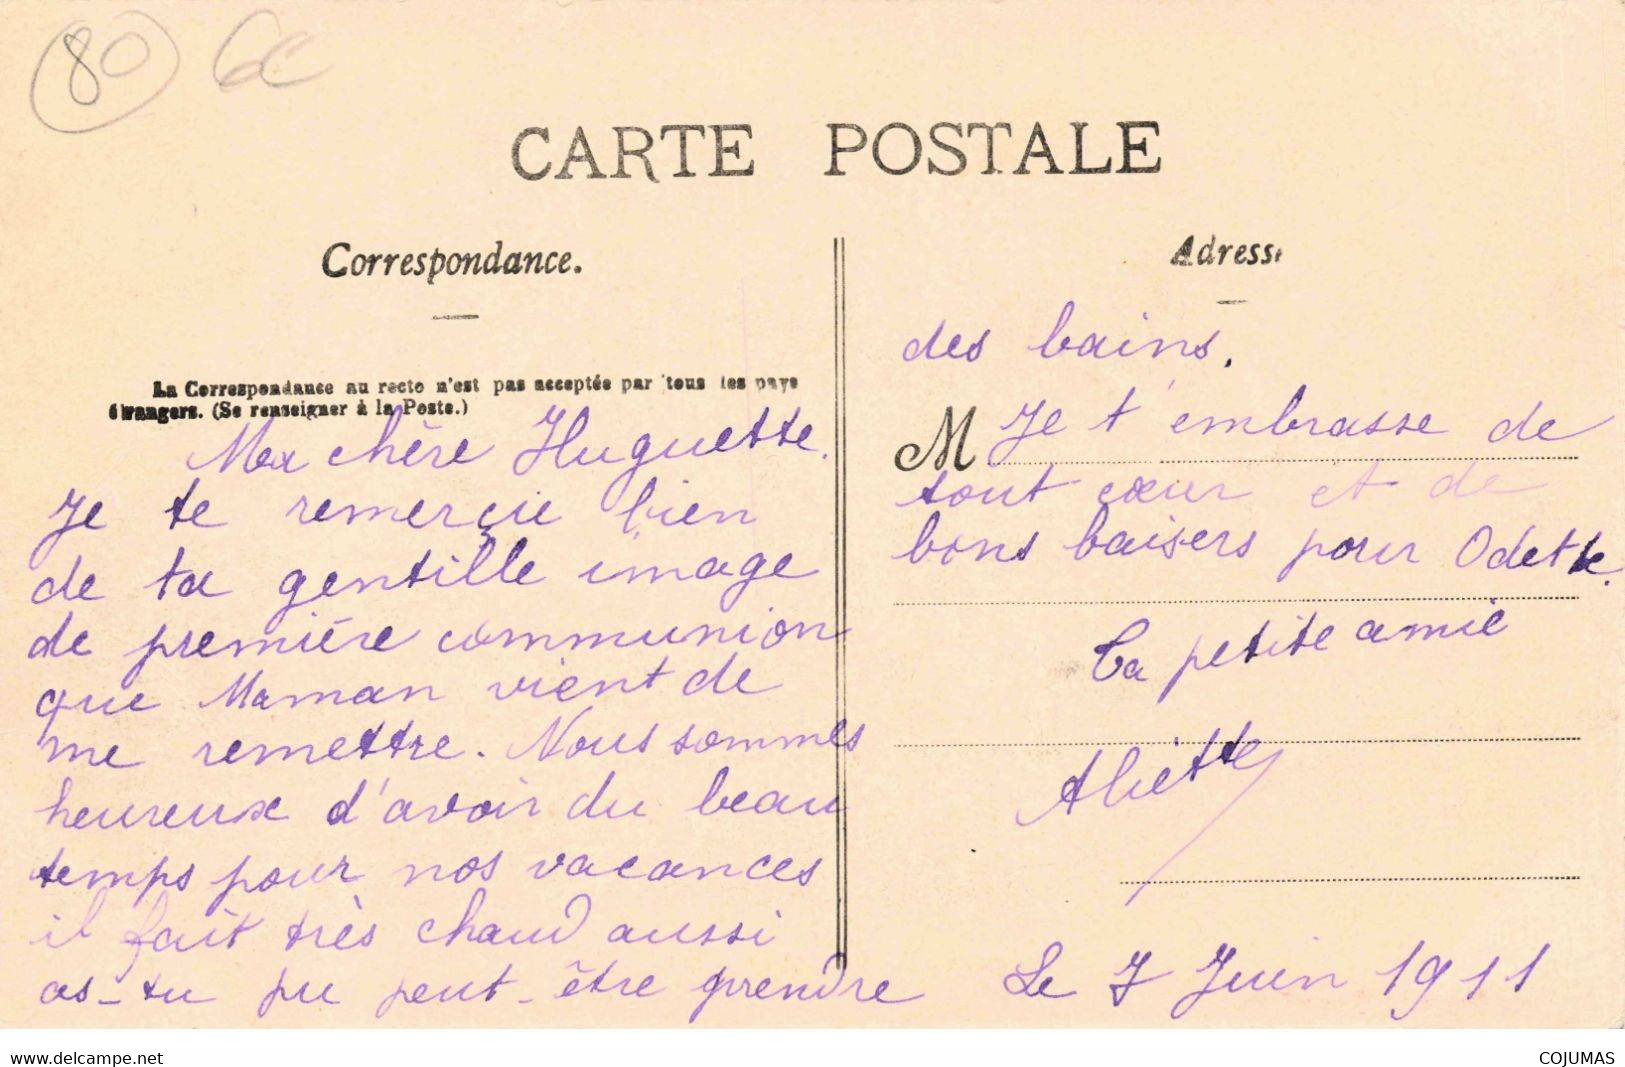 80
CARTE POSTALE
Correspondance.
La Correspondance au recto n'est pas acceptée par tous les pays
étrangers. (Se renseigner à la Poste.)
Ma chère Huguette.
Je te remerçie bien
de ta gentille image
de première communion
que Maman vient de
me remettre. Nous sommes
heureux d'avoir du beau
temps pour nos vacances
il fait très chaud aussi
as-tu pu peut-être prendre
Adresse
des bains.
M Je t'embrasse de
tout cœur et de
bons baisers pour Odette.
Ta petite amie
Aliette
Le 7 Juin 1911
www.delcampe.net
COJUMAS